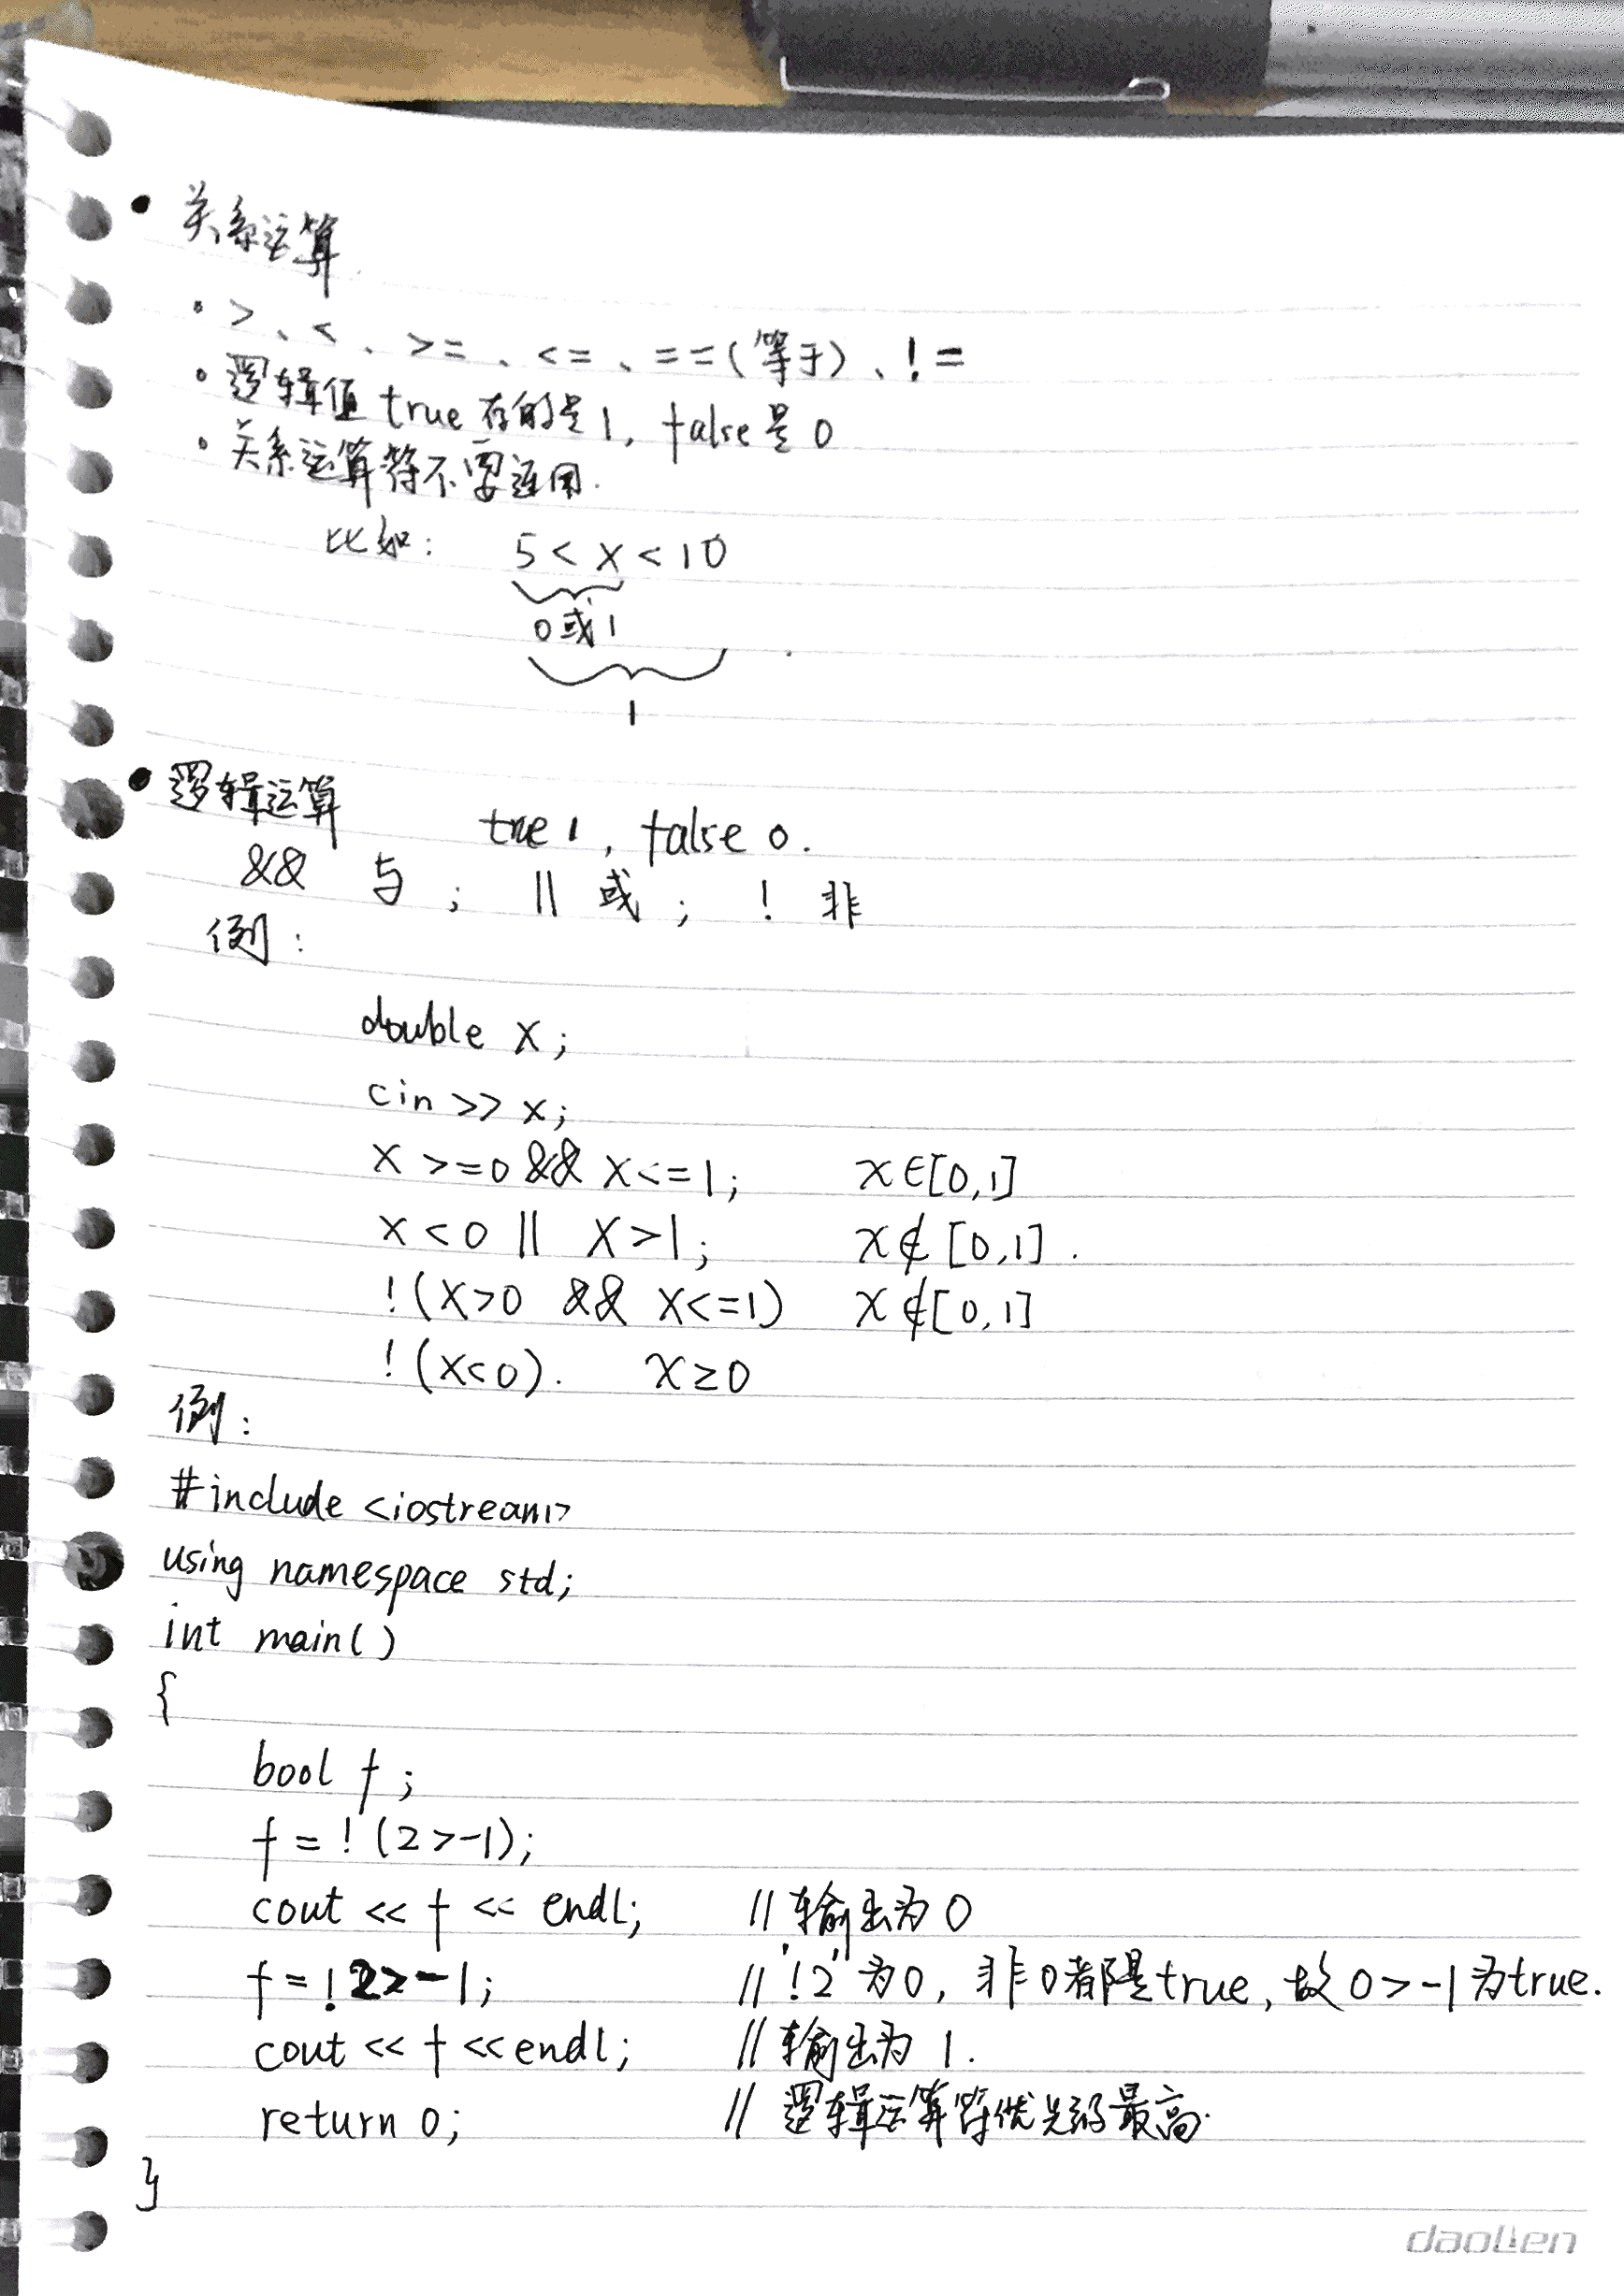 • 关系运算
• >、<、>=、<=、==(等于)、!=
• 逻辑值true存的是1, false是0
• 关系运算符不要连用.
比如: 5 < x < 10
0或1
1
• 逻辑运算 true 1, false 0.
&& 与 ; || 或 ; ! 非
例:
double x;
cin >> x;
x >=0 && x<=1; x∈[0,1]
x < 0 || x>1; x∉[0,1].
!(x>0 && x<=1) x∉[0,1]
!(x<0). x≥0
例:
#include <iostream>
using namespace std;
int main()
{
bool f;
f = !(2>-1);
cout << f << endl; //输出为0
f = !2>-1; //"!2"为0, 非0都是true, 故0>-1为true.
cout << f <<endl; //输出为1.
return 0; //逻辑运算符优先级最高.
}
daolen